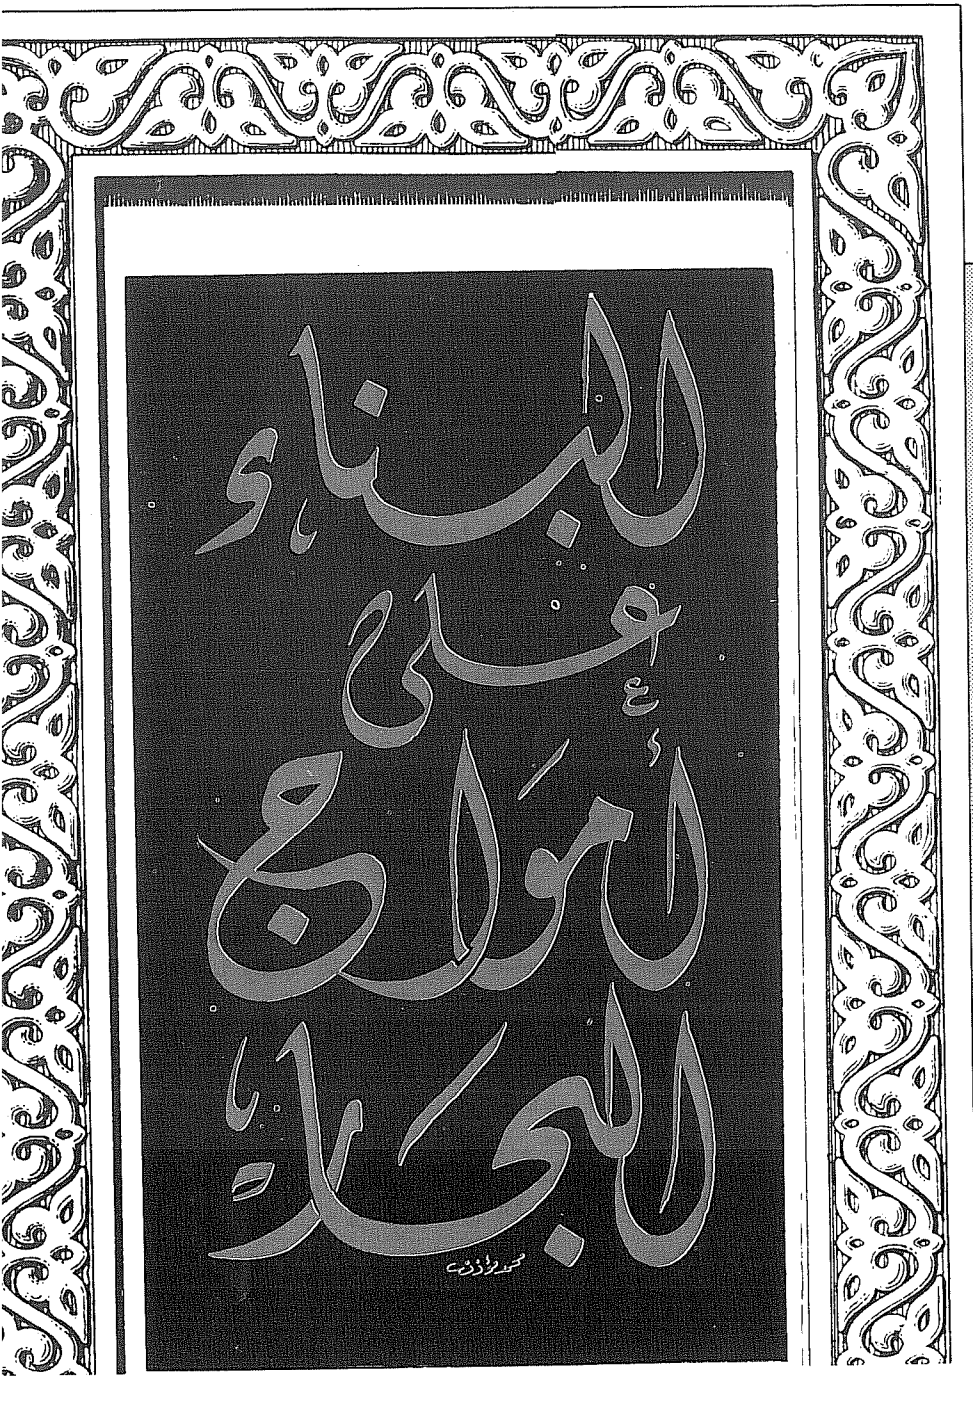 البناء
على
أموَاج
البحَار